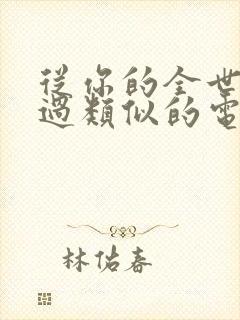 從你的全世
過類似的電
林佑春